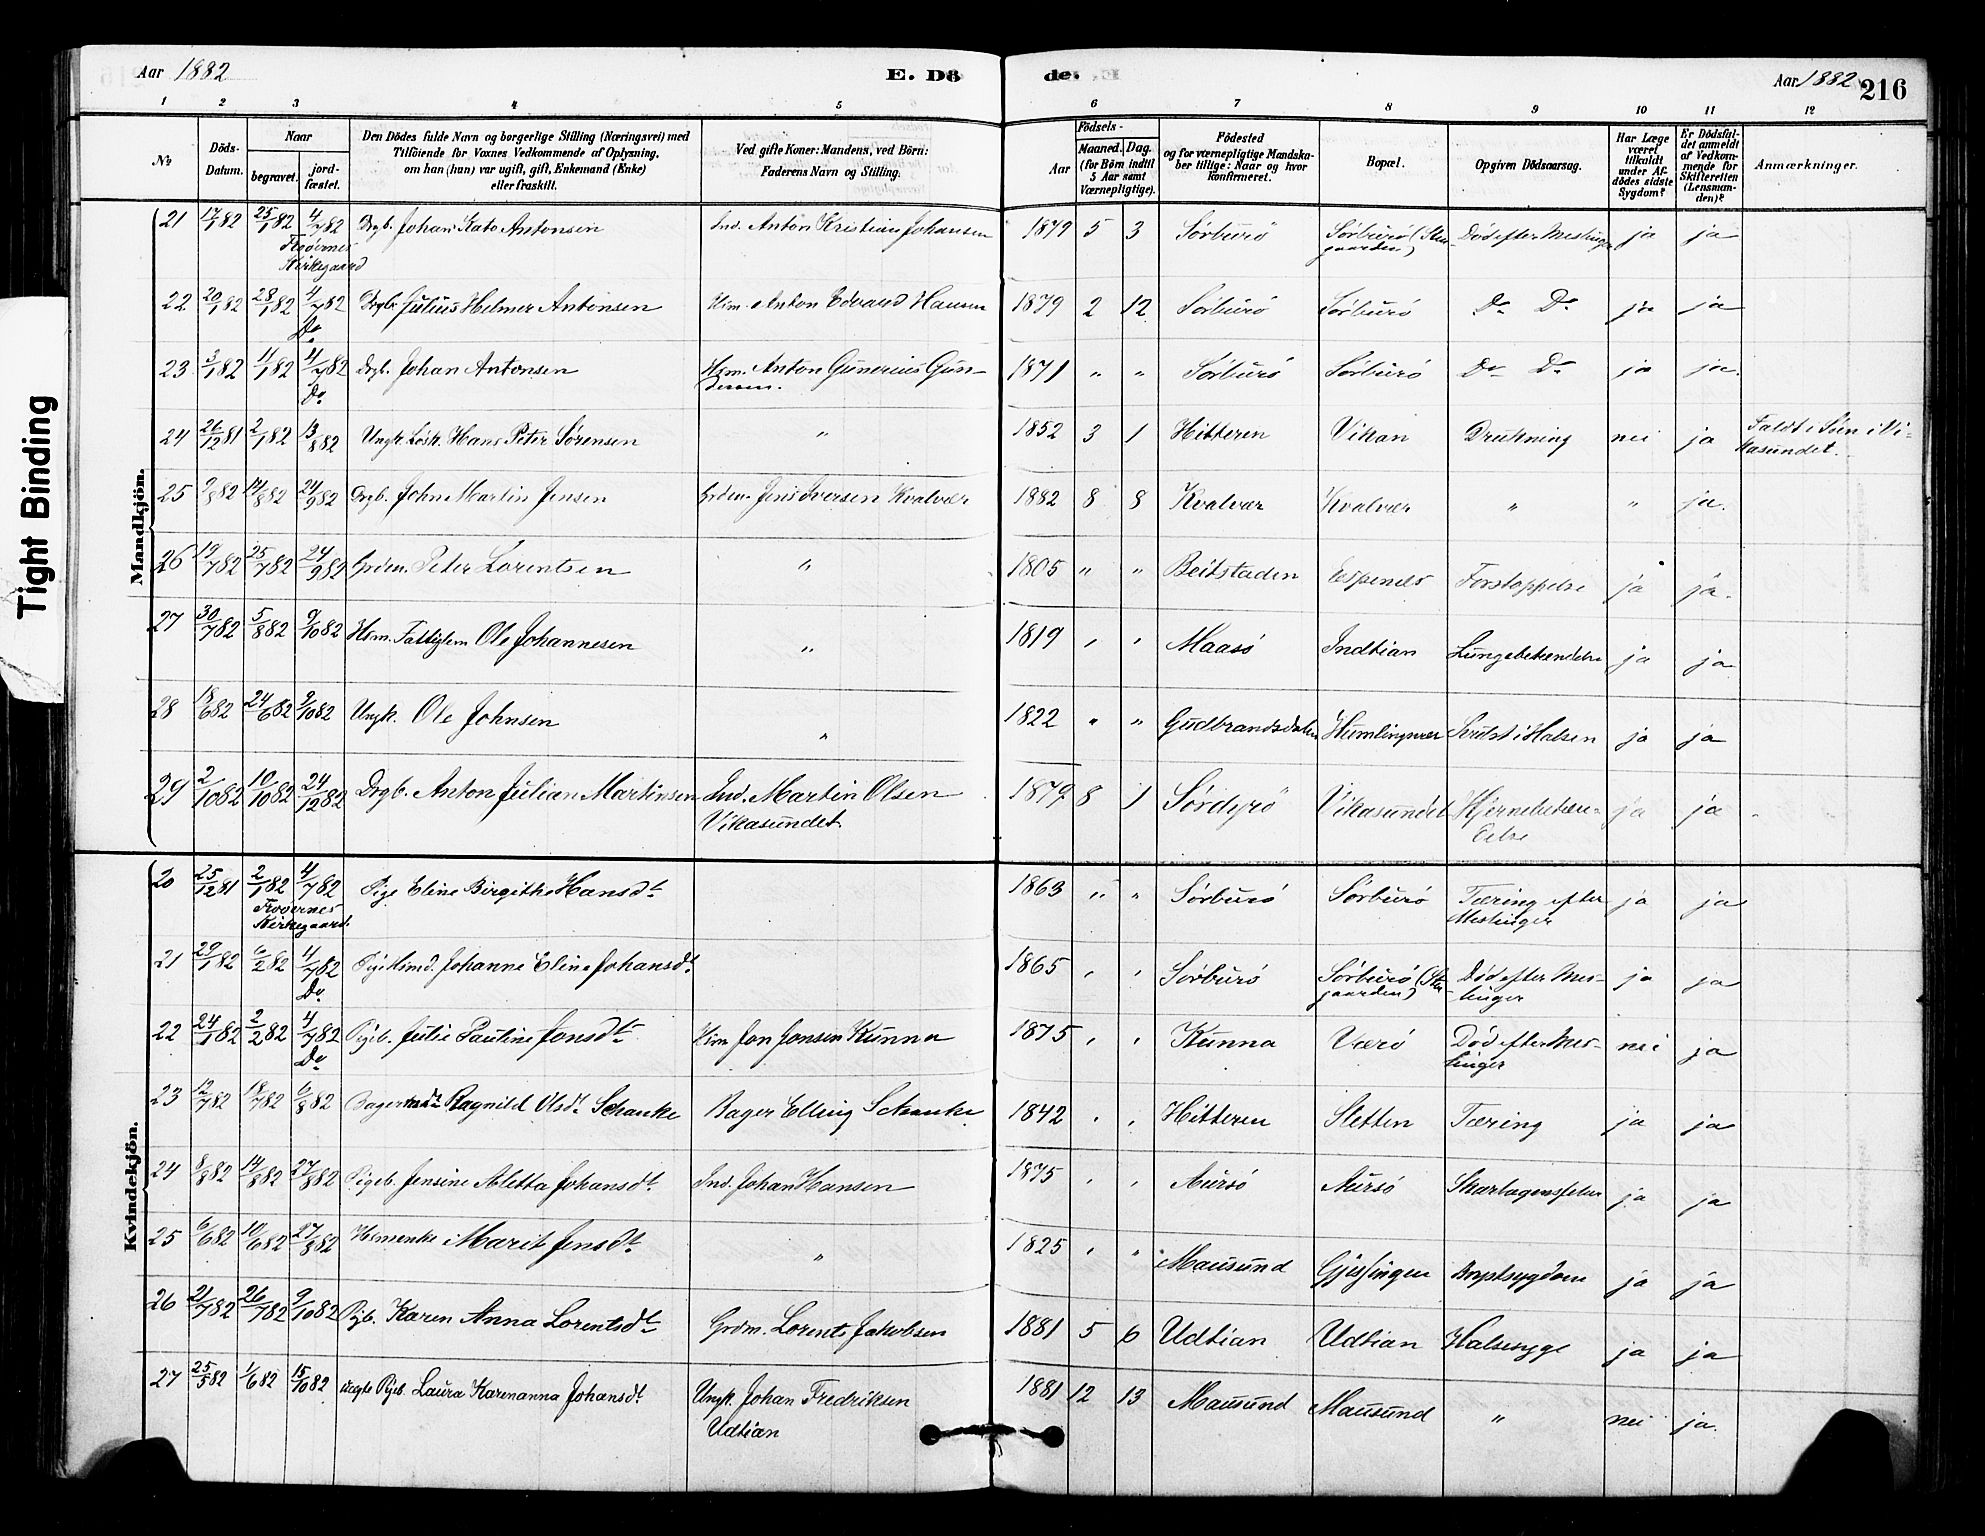 Aar 1882
E. Dö
de. E.
Aar 1882
216
1 2 3 4 5 6 7 8 9 10 11 12
No
Döds-
Datum.
Naar
begravet.
jord-
fæstet.
Den Dödes fulde Navn og borgerlige Stilling (Næringsvei) med
Tilföiende for Voxnes Vedkommende af Oplysning,
om han (hun) var ugift, gift, Enkemand (Enke)
eller fraskilt.
Ved gifte Koner: Mandens, ved Börn:
Faderens Navn og Stilling.
Födsels-
Aar Maaned. Dag.
(for Börn indtil
5 Aar samt
Værnepligtige).
Födested
og for værnepligtige Mandska-
ber tillige: Naar og hvor
konfirmeret.
Bopæl.
Opgiven Dödsaarsag.
Har Læge
været
tilkaldt
under Af-
dödes sidste
Sygdom?
Er Dödsfal-
det anmeldt
af Vedkom-
mende for
Skifteretten
(Lensman-
den)?
Anmærkninger.
Tight Binding
Mandkjön.
21 17/1 82 25/1 82 4/7 82 Drgb. Johan Kato Antonsen Ind. Anton Kristian Johansen 1879 5 3 Sörburö Sörburö (Sten- Död efter Meslinger ja ja
Froövernes gaarden)
Kirkegaard
22 20/1 82 28/1 82 4/7 82 Drgb. Julius Helmer Antonsen Hsm. Anton Edvard Hansen 1879 2 12 Sörburö Sörburö Do Do ja ja
Do
23 3/1 82 11/1 82 4/7 82 Drgb. Johan Antonsen Hsm. Anton Gunerius Gun- 1871 " " Sörburö Sörburö Do Do ja ja.
Do dersen.
24 26/12 81 2/1 82 13/8 82 Ungk. Losk. Hans Peter Sörensen " 1852 3 1 Hitteren Vikan Drukning nei ja Faldt i Söen i Vi-
kasundet.
25 9/8 82 14/8 82 24/9 82 Drgb. John Martin Jensen Grdm. Jens Iversen Kvalvær 1882 8 8 Kvalvær Kvalvær " " ja.
26 19/7 82 25/7 82 24/9 82 Grdm. Peter Lorentsen " 1805 " " Beitstaden Espenes Forstoppelse ja ja.
27 30/7 82 5/8 82 9/10 82 Hsm. Fattiglem Ole Johannesen " 1819 " " Maasö Indtian Lungebetændelse ja ja
28 18/6 82 24/6 82 9/10 82 Ungk. Ole Johnsen " 1822 " " Gudbrandsdalen Humlingsvær i Halsen ja ja
29 2/10 82 10/10 82 24/12 82 Drgb. Anton Julian Martinsen Ind. Martin Olsen 1879 8 1 Sördyrö Vikasundet Hjernebetæn- ja ja
Vikasundet. delse
Kvindekjön.
20 25/12 81 2/1 82 4/7 82 Pige Eline Birgitte Hansdt. 1863 " " Sörburö Sörburö Tæring efter ja ja
Froövernes Meslinger
Kirkegaard.
21 29/1 82 6/2 82 4/7 82 Pige Johanne Eline Johansdt. 1865 " " Sörburö Sörburö (Sten- Död efter Mes- ja ja
Do gaarden) linger
22 24/1 82 2/2 82 4/7 82 Pigeb. Julie Pauline Jonsdt. Hsm Jon Jonsen Kunna 1875 " " Kunna Værö Död efter Mes- nei ja
Do linger
23 12/7 82 18/7 82 6/8 82 Ragnild Olsdt. Schanke Bager Elling Schanke 1842 " " Hitteren Sletten Tæring ja ja
24 8/8 82 14/8 82 27/8 82 Pigeb. Jensine Aletta Johansdt. Ind. Johan Hansen 1875 " " Aursö Aursö Skarlagensfeber ja ja
25 6/6 82 10/6 82 27/8 82 Hsmenke Marit Jensdt. " 1825 " " Mausund Gjessingen Brystsygdom ja ja
26 21/7 82 26/7 82 9/10 82 Pigb. Karen Anna Lorentsdt. Grdm. Lorents Jakobsen 1881 5 6 Udtian Udtian Halssyge ja ja
27 25/5 82 1/6 82 15/10 82 uægte Pigeb. Laura Karenanna Johansdt. Ungk. Johan Fredriksen 1881 12 13 Mausund Mausund " nei ja.
Udtian